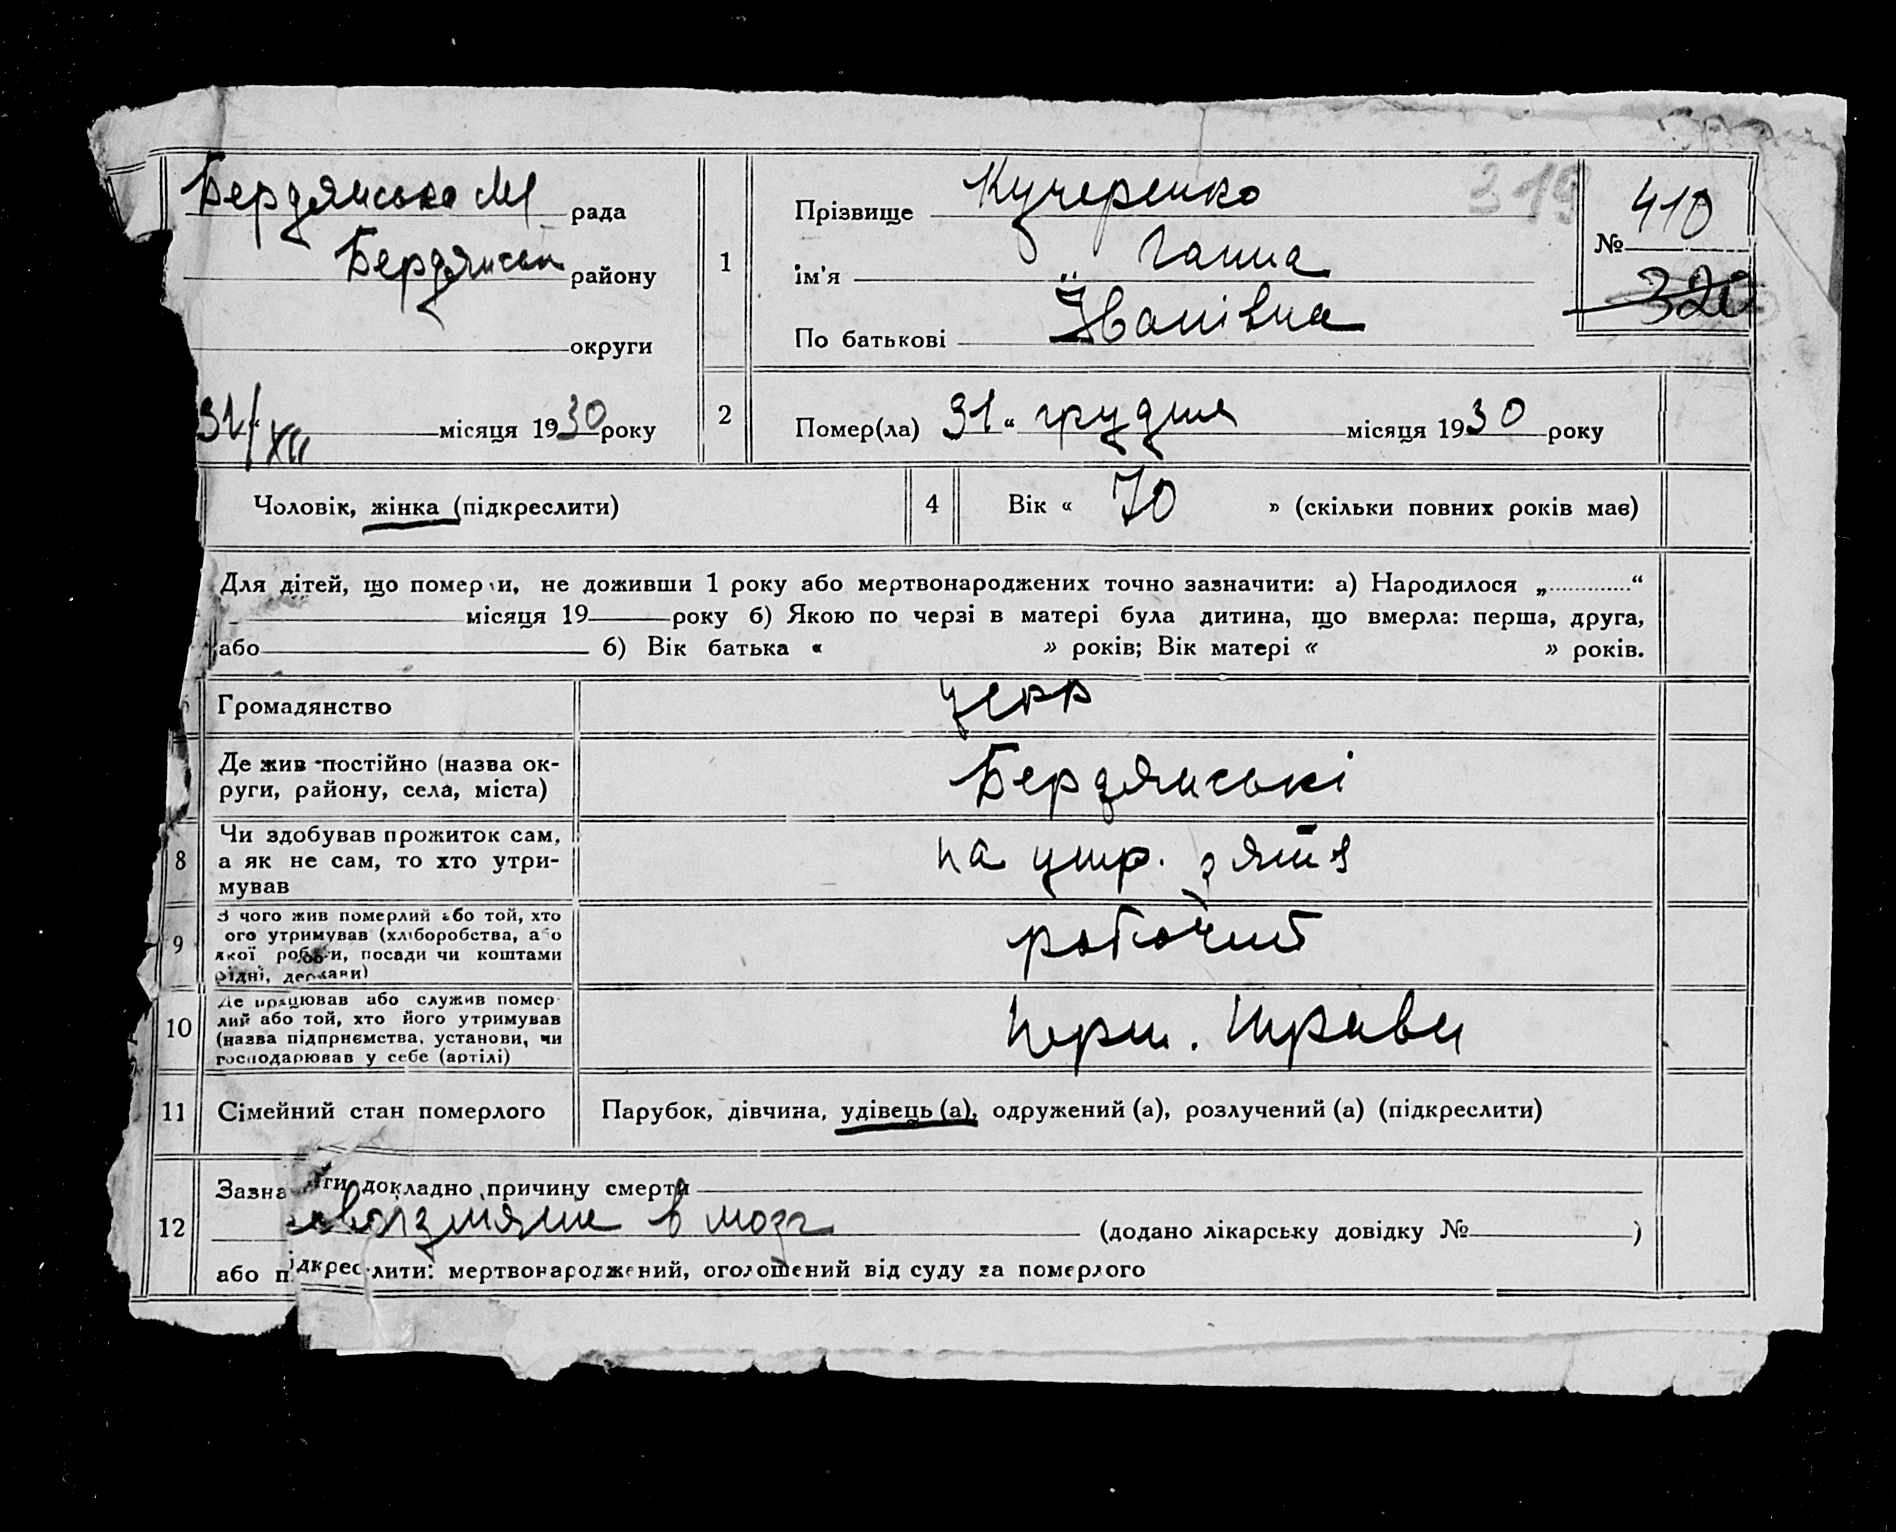 319
Бердянська М рада
Бердянськ району
округи
31/XII місяця 1930 року
1
Прізвище Кучеренко
ім'я Ганна
По батькові Іванівна
№ 410
320
2
Помер(ла) 31 “ грудня місяця 1930 року
Чоловік, жінка (підкреслити)
4
Вік « 70 » (скільки повних років має)
Для дітей, що померли, не доживши 1 року або мертвонароджених точно зазначити: а) Народилося „ “
місяця 19 року б) Якою по черзі в матері була дитина, що вмерла: перша, друга,
або б) Вік батька « » років; Вік матері « » років.
Громадянство усрр
Де жив постійно (назва ок-
руги, району, села, міста)
Бердянські
8
Чи здобував прожиток сам,
а як не сам, то хто утри-
мував
на утр. зятя
9
З чого жив померлий або той, хто
ого утримував (хліборобства, або
якої роботи, посади чи коштами
рідні, держави)
робочий
10
Де працював або служив помер-
лий або той, хто його утримував
(назва підприємства, установи, чи
господарював у себе (артілі)
Перш. Травн
11
Сімейний стан померлого
Парубок, дівчина, удівець (а), одружений (а), розлучений (а) (підкреслити)
12
Зазначити докладно причину смерти
в мозг (додано лікарську довідку № )
або підкреслити: мертвонароджений, оголошений від суду за померлого